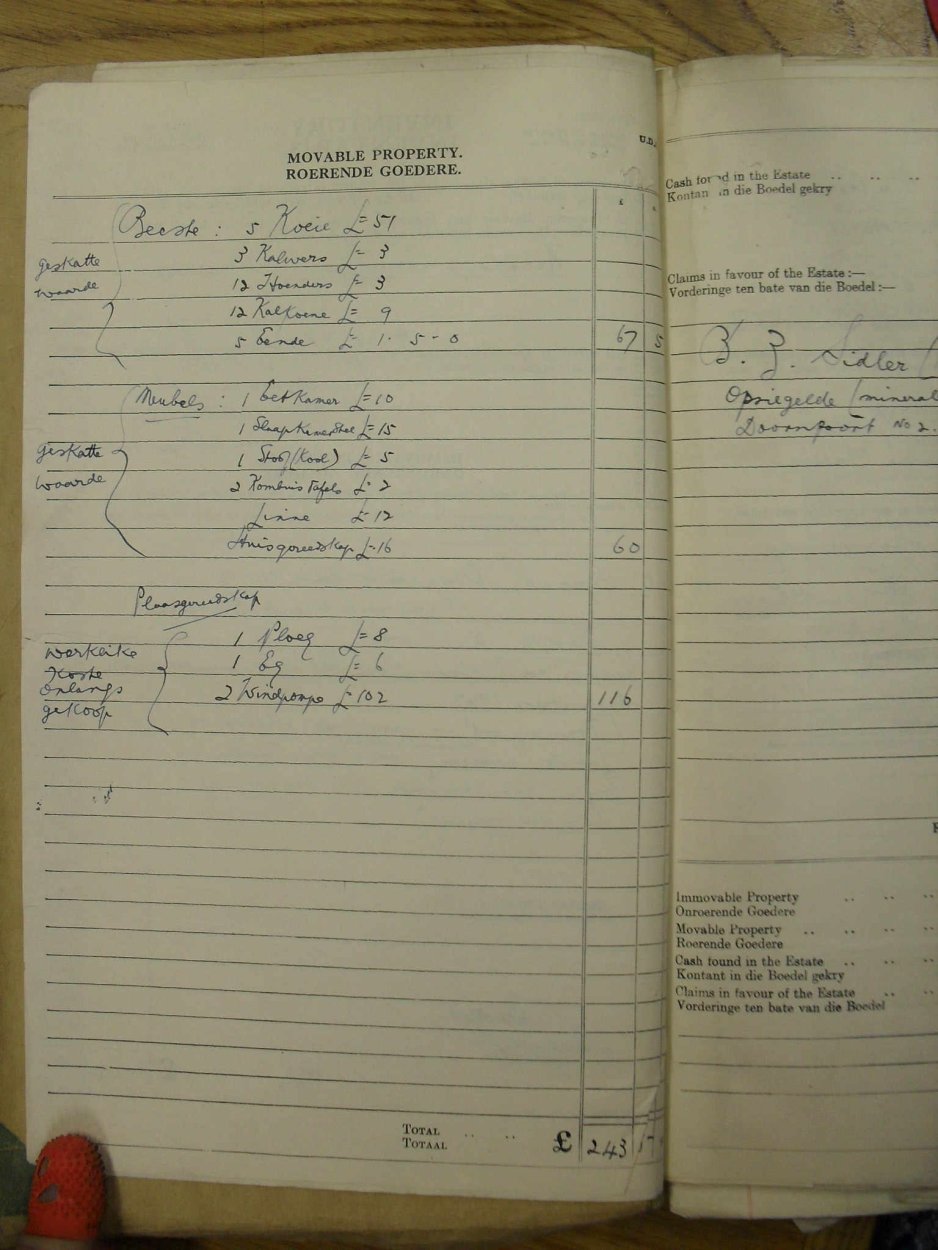 U.D.
MOVABLE PROPERTY.
ROERENDE GOEDERE.
£
Beeste : 5 Koeie £=51
geskatte
waarde
3 Kalwers £= 3
12 Hoenders £= 3
12 Kalkoene £= 9
5 Eende £ 1. 5-0 67 5
geskatte
waarde
Meubels : 1 Eetkamer £=10
1 Slaapkamerstel £=15
1 Stoof (Kool) £= 5
2 Kombuis Tafels £= 2
Linne £= 12
Huisgereedskap £=16 60
Plaasgereedskap
werklike
Koste
onlangs
gekoop
1 Ploeg £=8
1 Eg £= 6
2 Windpompe £=102 116
TOTAL .. ..
TOTAAL
£ 243
Cash found in the Estate .. .. ..
Kontant in die Boedel gekry
Claims in favour of the Estate :—
Vorderinge ten bate van die Boedel :—
B. Z. Sidler
Opsiegelde (mineral
Doornpoort No 2.
Immovable Property .. .. ..
Onroerende Goedere
Movable Property .. .. .. ..
Roerende Goedere
Cash found in the Estate .. .. ..
Kontant in die Boedel gekry
Claims in favour of the Estate .. ..
Vorderinge ten bate van die Boedel